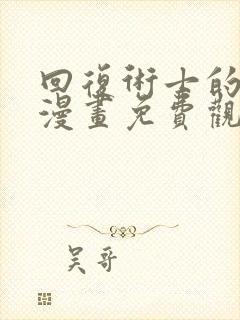 回復術士的
漫畫免費觀
吴哥